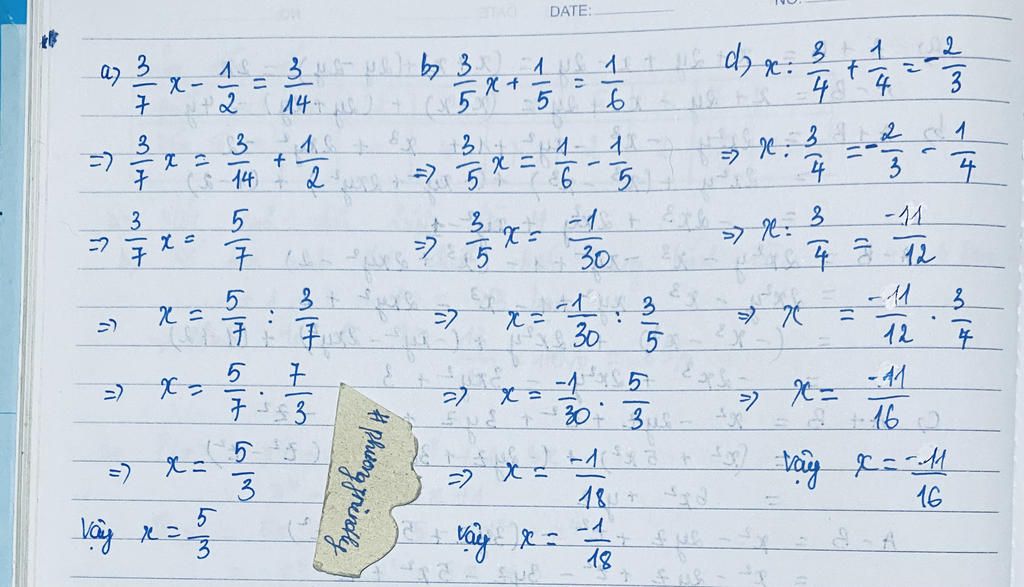 DATE:
NO.
a) 3/7 x - 1/2 = 3/14
=> 3/7 x = 3/14 + 1/2
=> 3/7 x = 5/7
=> x = 5/7 : 3/7
=> x = 5/7 . 7/3
=> x = 5/3
Vậy x = 5/3
b) 3/5 x + 1/5 = 1/6
=> 3/5 x = 1/6 - 1/5
=> 3/5 x = -1/30
=> x = -1/30 : 3/5
=> x = -1/30 . 5/3
=> x = -1/18
Vậy x = -1/18
d) x : 3/4 + 1/4 = -2/3
=> x : 3/4 = -2/3 - 1/4
=> x : 3/4 = -11/12
=> x = -11/12 . 3/4
=> x = -11/16
Vậy x = -11/16